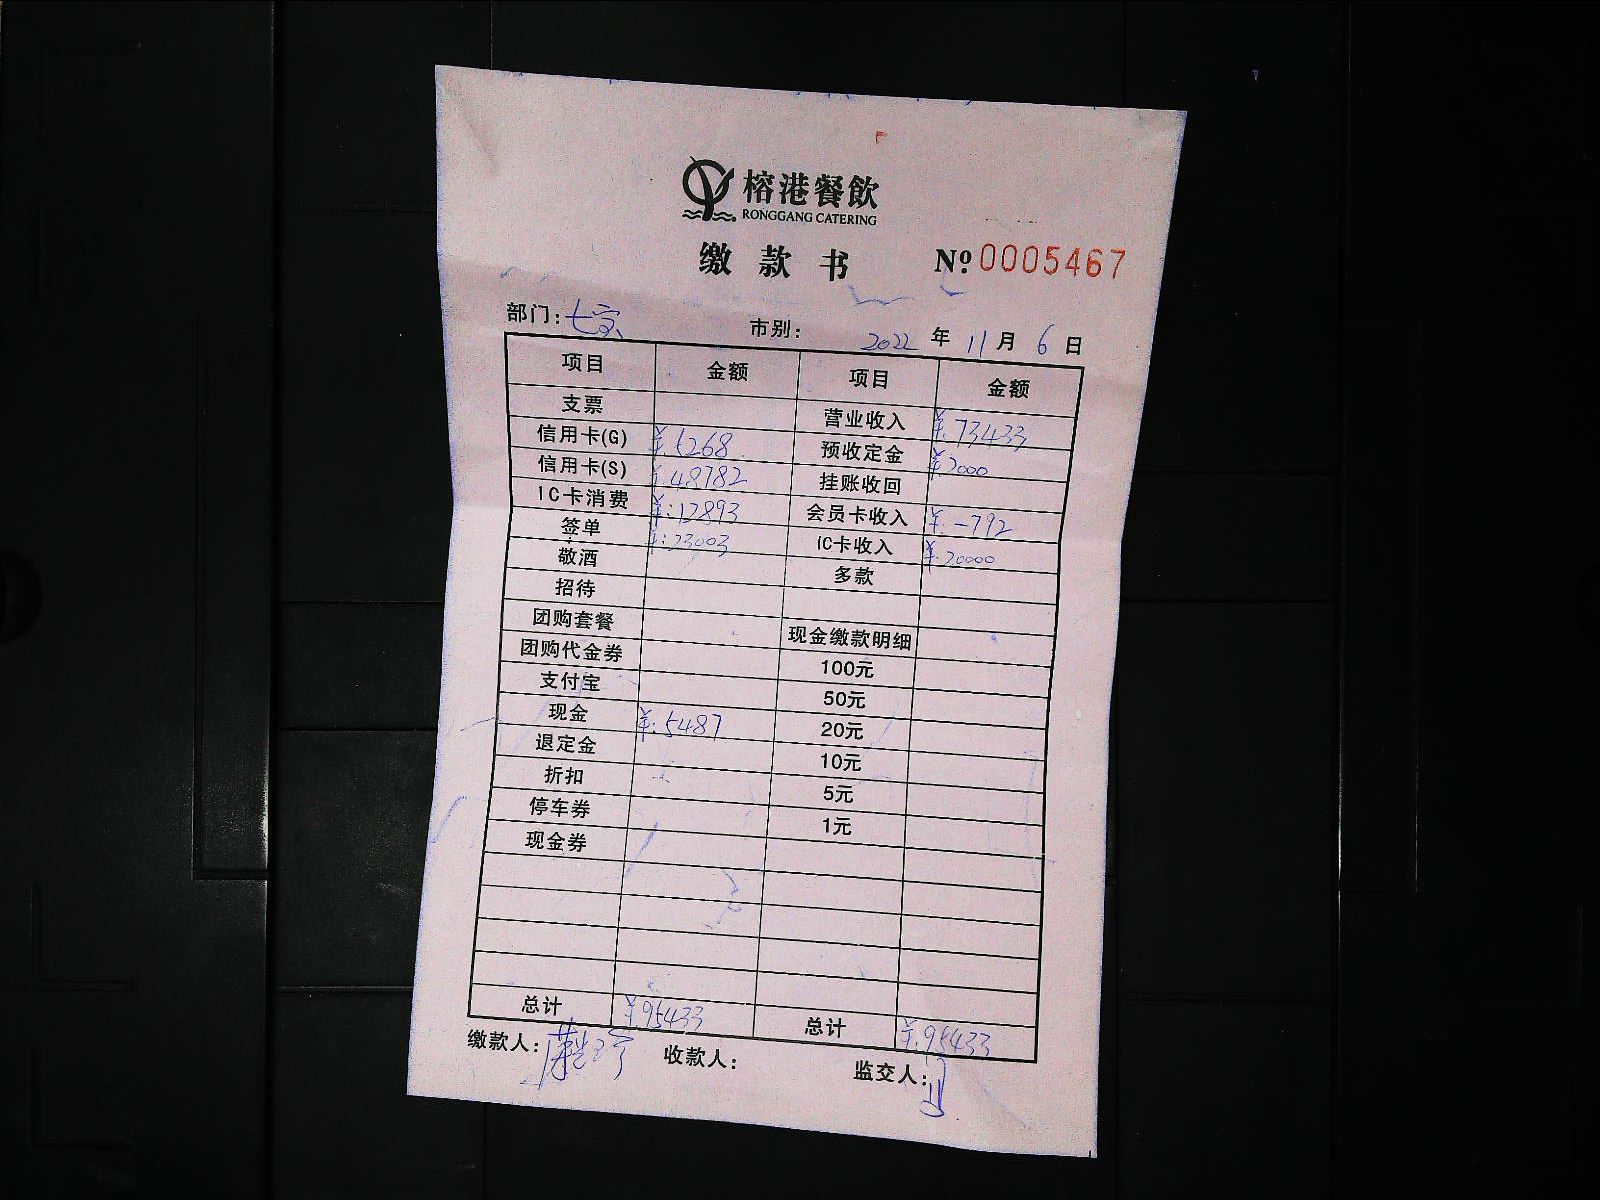 榕港餐飲
RONGGANG CATERING
缴款书 Nº 0005467
部门: 七宝 市别: 2022 年 11 月 6 日
项目 金额 项目 金额
支票 营业收入 ¥:73433
信用卡(G) ¥:5268 预收定金 ¥:2000
信用卡(S) ¥:48782 挂账收回
IC卡消费 ¥:12893 会员卡收入 ¥:-792
签单 ¥:23003 IC卡收入 ¥:20000
敬酒 多款
招待
团购套餐 现金缴款明细
团购代金券 100元
支付宝 50元
现金 ¥:5487 20元
退定金 10元
折扣 5元
停车券 1元
现金券
总计 ¥95433 总计 ¥:95433
缴款人: 收款人: 监交人: